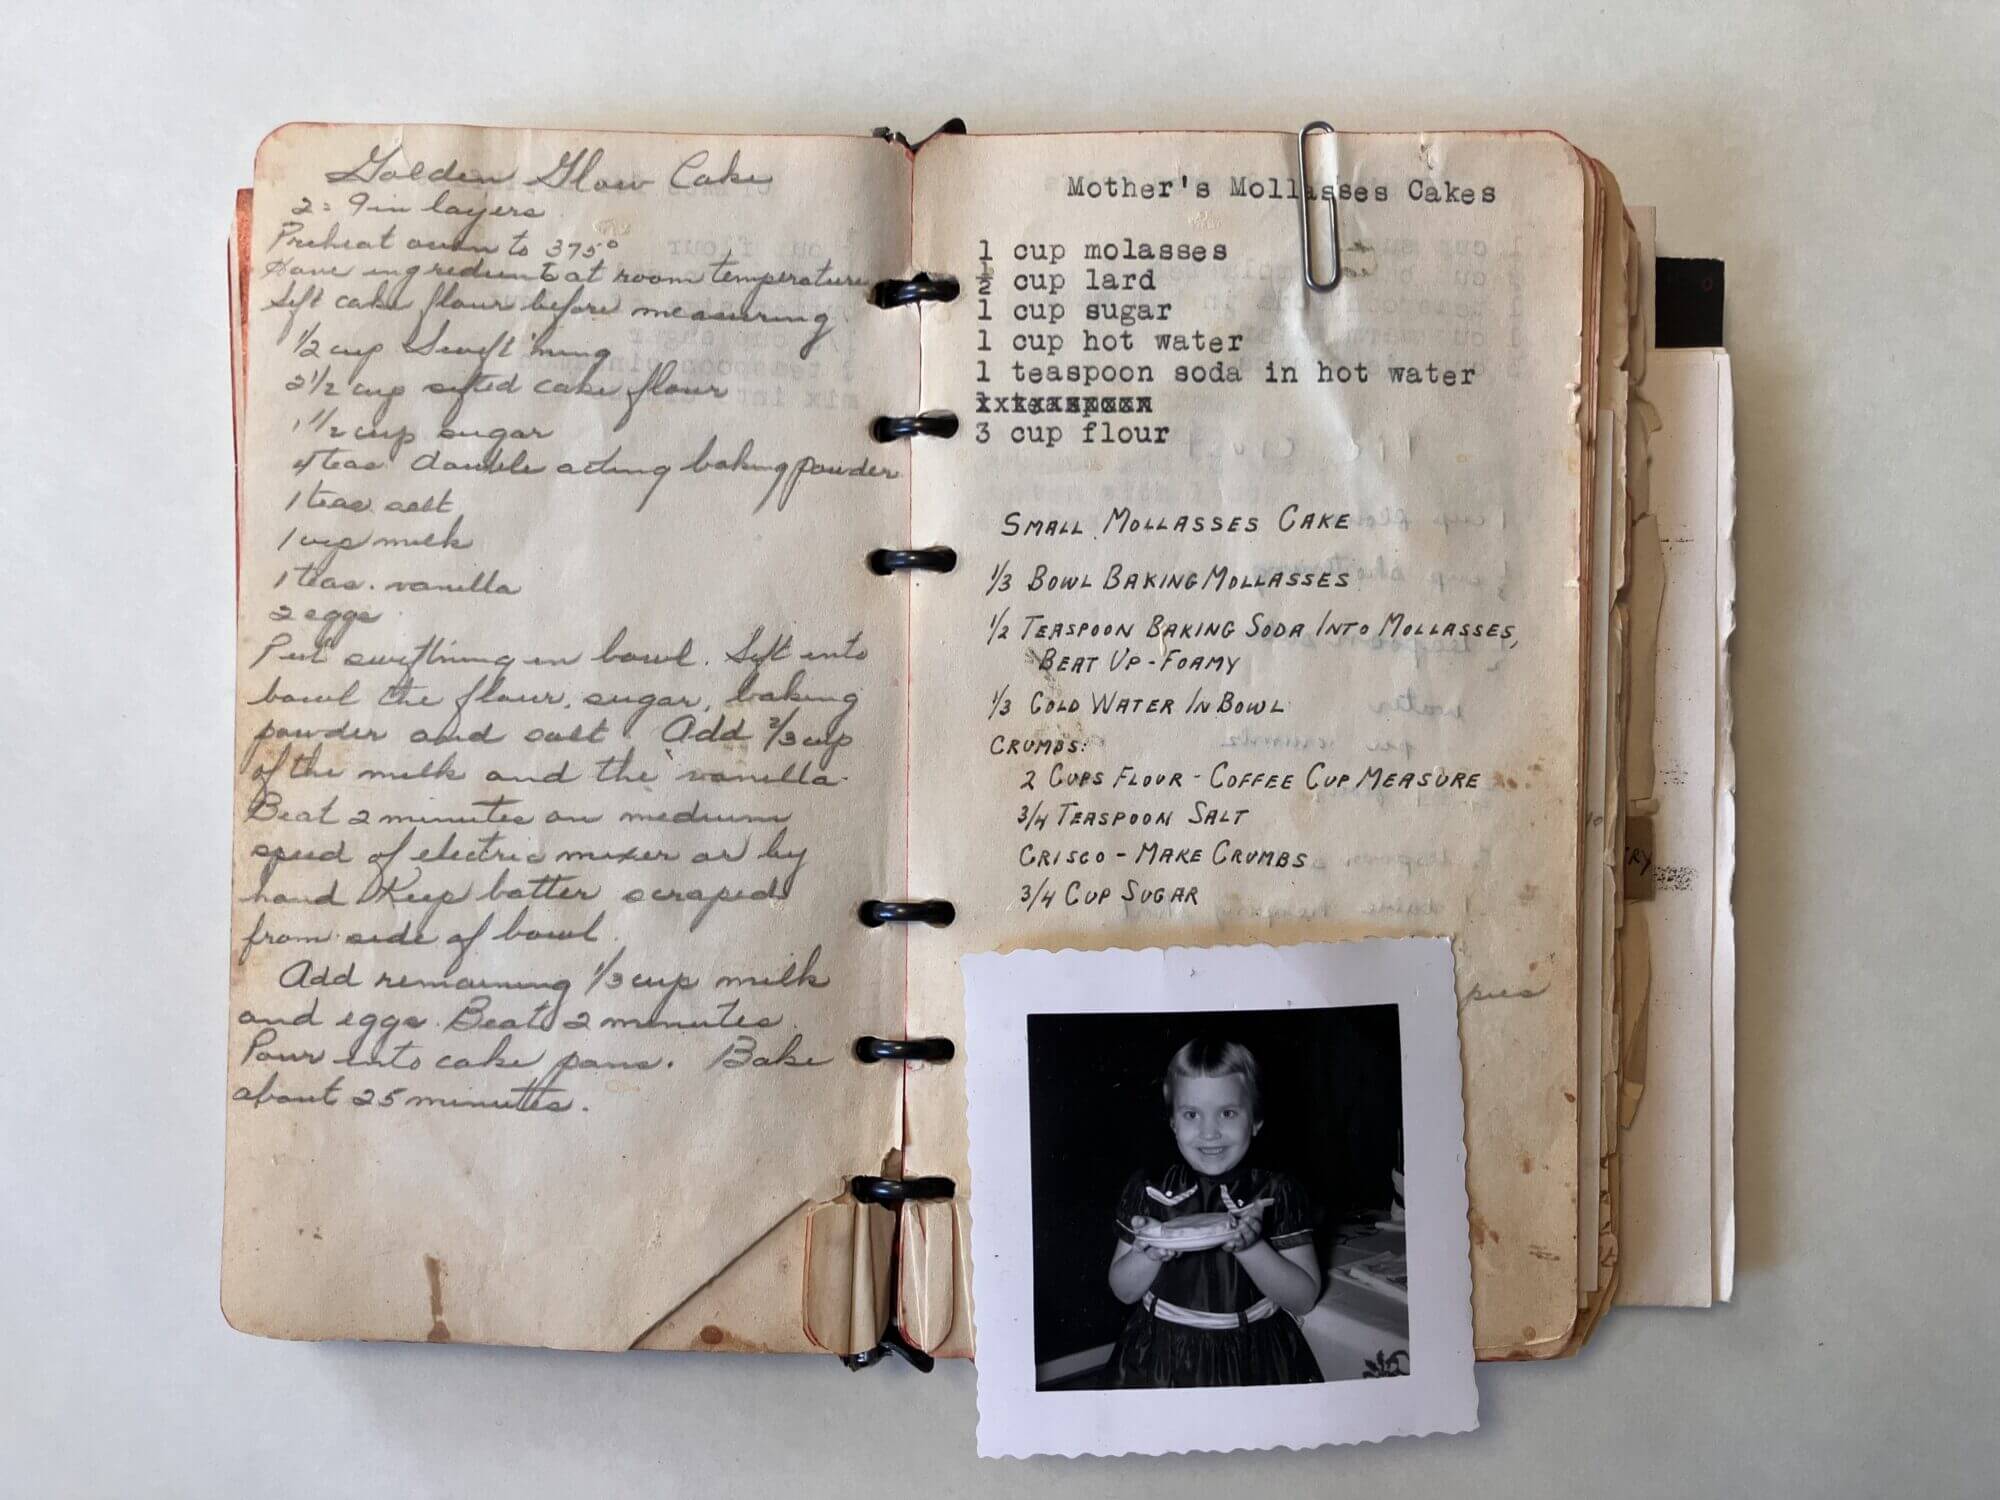 Golden Glow Cake
2 = 9 in layers
Preheat oven to 375°
Have ingredients at room temperature
Sift cake flour before measuring
1/2 cup Swift'ning
2 1/2 cup sifted cake flour
1 1/2 cup sugar
4 teas double acting baking powder
1 teas salt
1 cup milk
1 teas. vanilla
2 eggs
Put swiftning in bowl. Sift into
bowl the flour, sugar, baking
powder and salt. Add 2/3 cup
of the milk and the vanilla.
Beat 2 minutes on medium
speed of electric mixer or by
hand Keep batter scraped
from side of bowl.
Add remaining 1/3 cup milk
and eggs. Beat 2 minutes.
Pour into cake pans. Bake
about 25 minutes.
Mother's Mollasses Cakes
1 cup molasses
½ cup lard
1 cup sugar
1 cup hot water
1 teaspoon soda in hot water
3 cup flour
SMALL MOLLASSES CAKE
1/3 BOWL BAKING MOLLASSES
1/2 TEASPOON BAKING SODA INTO MOLLASSES,
BEAT UP - FOAMY
1/3 COLD WATER IN BOWL
CRUMBS:
2 CUPS FLOUR - COFFEE CUP MEASURE
3/4 TEASPOON SALT
CRISCO - MAKE CRUMBS
3/4 CUP SUGAR
pies
RY